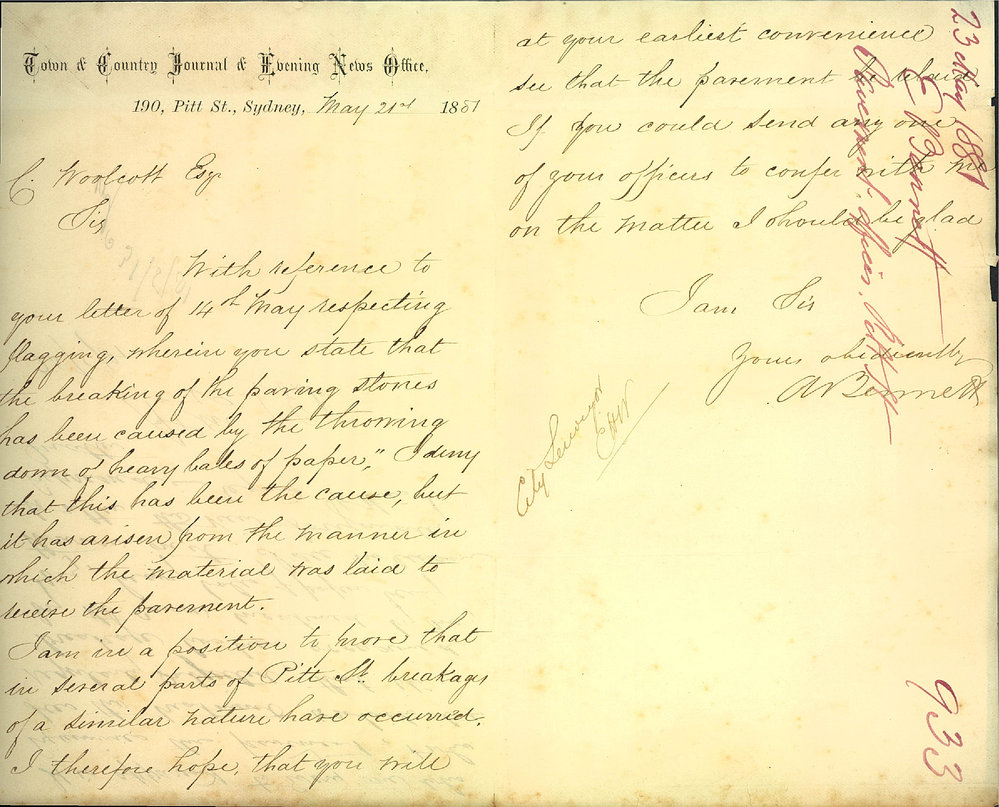 Town & Country Journal & Evening News Office,
190, Pitt St., Sydney, May 21st 1881
C. Woolcott Esq
Sir
With reference to
your letter of 14th May respecting
flagging, wherein you state that
the breaking of the paving stones
has been caused by the throwing
down of heavy bales of paper," I deny
that this has been the cause, but
it has arisen from the manner in
which the material was laid to
receive the pavement.
I am in a position to prove that
in several parts of Pitt St. breakages
of a similar nature have occurred.
I therefore hope, that you will
at your earliest convenience
see that the pavement be
If you could send any one
of your officers to confer with me
on the matter I should be glad
I am Sir
Yours obediently
A Bennett
City Surveyor
23 May 1881
Bennett
Pavement
933